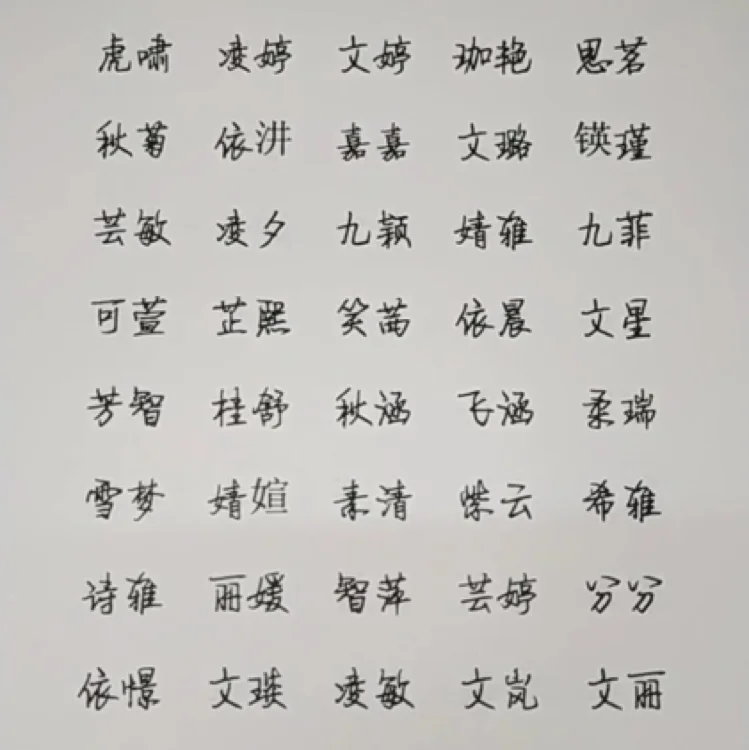 虎啸 凌婷 文婷 珈艳 思茗
秋菊 依汫 嘉嘉 文璐 锳瑾
芸敏 凌夕 九颖 婧雅 九菲
可萱 芷熙 笑茜 依晨 文星
芳智 桂舒 秋涵 飞涵 柔瑞
雪梦 婧媗 素清 紫云 希雅
诗雅 丽媛 智萍 芸婷 兮兮
依憬 文琰 凌敏 文岚 文丽